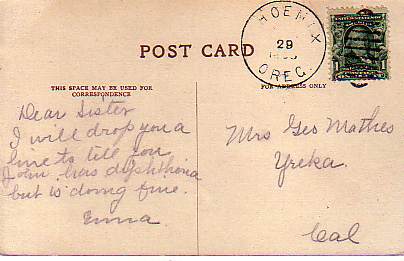 POST CARD
THIS SPACE MAY BE USED FOR
CORRESPONDENCE
FOR ADDRESS ONLY
PHOENIX
29
OREG.
1
Dear Sister
I will drop you a
line to tell you
John has diphtheria
but is doing fine.
Emma
Mrs Geo Mathes
Yreka.
Cal